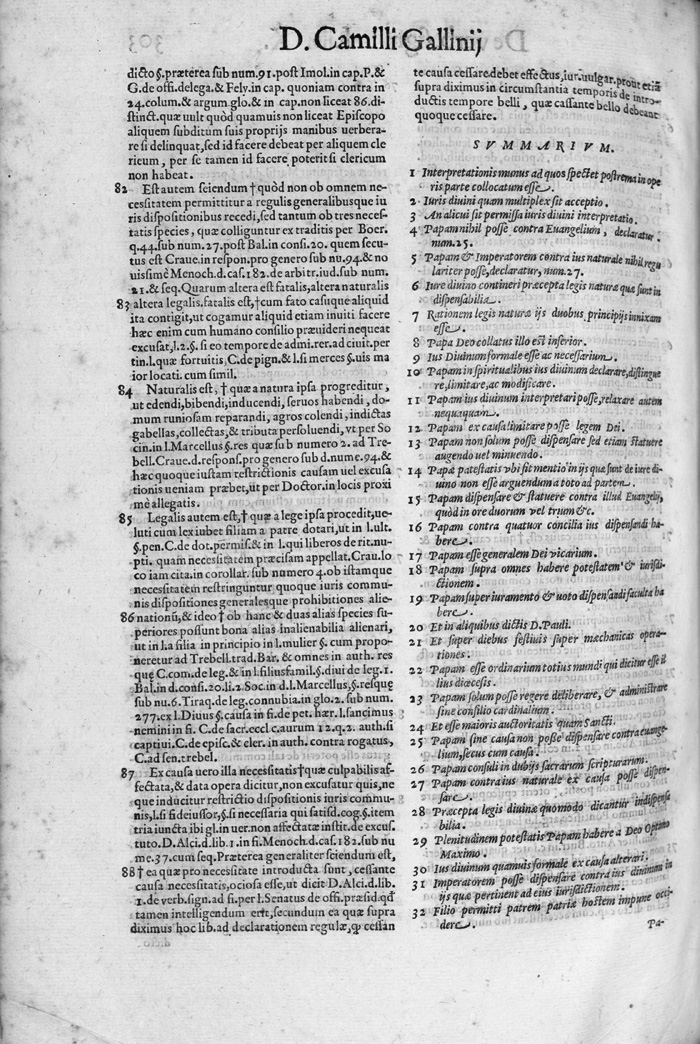 D. Camilli Gallinij
dicto §. præterea sub num. 91. post Imol. in cap. P. &
G. de offi. delega. & Fely. in cap. quoniam contra in
24. colum. & argum glo. & in cap. non liceat 86. di-
stinct. quæ uult quòd quamuis non liceat Episcopo
aliquem subditum suis proprijs manibus uerbera-
re si delinquat, sed id facere debeat per aliquem cle
ricum, per se tamen id facere poterit si clericum
non habeat.
82 Est autem sciendum † quòd non ob omnem ne-
cessitatem permittitur a regulis generalibusque iu
ris dispositionibus recedi, sed tantum ob tres neces-
tatis species, quæ colliguntur ex traditis per Boer.
q. 44. sub num. 27. post Bal. in consi. 20. quem secu-
tus est Craue. in respon. pro genero sub nu. 94. & no
uissimè Menoch. d. cas. 182. de arbitr. iud. sub num.
21. & seq. Quarum altera est fatalis, altera naturalis
83 altera legalis. fatalis est, † cum fato casuque aliquid
ita contigit, ut cogamur aliquid etiam inuiti facere
hæc enim cum humano consilio præuideri nequeat
excusat, l. 2. §. si eo tempore de admi. rer. ad ciuit. per
tin. l. quæ fortuitis, C. de pign. & l. si merces §. uis ma
ior locati. cum simil.
84 Naturalis est, † quæ a natura ipsa progreditur,
ut edendi, bibendi, inducendi, seruos habendi, do-
mum runiosam reparandi, agros colendi, indictas
gabellas, collectas, & tributa persoluendi, ut per So
cin. in l. Marcellus §. res quæ sub numero 2. ad Tre-
bell. Craue. d. respons. pro genero sub d. nume. 94. &
hæc quoque iustam restrictionis causam uel excusa
tionis ueniam præbet, ut per Doctor. in locis proxi
mè allegatis.
85 Legalis autem est, † quæ a lege ipsa procedit, ue-
luti cum lex iubet filiam a patre dotari, ut in l. ult.
§. pen. C. de dot. permis. & in l. qui liberos de rit. nu-
pti. quam necessitatem præcisam appellat. Crau. lo
co iam cita. in corollar. sub numero 4. ob istamque
necessitatem restringuntur quoque iuris commu-
nis dispositiones generalesque prohibitiones alie-
86 nationis, & ideo † ob hanc & duas alias species su-
periores possunt bona alias inalienabilia alienari,
ut in l. a filia in principio in l. mulier §. cum propo-
neretur ad Trebell. trad. Bar. & omnes in auth. res
que C. com. de leg. & in l. filiusfamil. §. diui de leg. 1.
Bal. in d. consi. 20. li. 2. Soc. in d. l. Marcellus, §. resque
sub nu. 6. Tiraq. de leg. connubia. in glo. 2. sub num.
277. ex l. Diuus §. causa in fi. de pet. hær. l. sancimus
nemini in fi. C. de sacr. eccl. c. aurum 12. q. 2. auth. si
captiui. C. de episc. & cler. in auth. contra rogatus,
C. ad sen. trebel.
87 Ex causa uero illa necessitatis † quæ culpabilis af-
fectata, & data opera dicitur, non excusatur quis, ne
que inducitur restrictio dispositionis iuris commu-
nis, l. si fideiussor, §. si necessaria qui satisd. cog. §. item
tria iuncta ibi gl. in uer. non affectatæ instit. de excus.
tuto. D. Alci. d. lib. 1. in fi. Menoch. d. cas. 182. sub nu
me. 37. cum seq. Præterea generaliter sciendum est,
88 † ea quæ pro necesitate introducta sunt, cessante
causa necessitatis, ociosa esse, ut dicit D. Alci. d. lib.
1. de verb. sign. ad fi. per l. Senatus de offi. præsid. qd'
tamen intelligendum erit, secundum ea quæ supra
diximus hoc lib. ad declarationem regulæ, qp cessan
te causa cessare debet effectus, iur. uulgar. prout etiā
supra diximus in circumstantia temporis de intro-
ductis tempore belli, quæ cassante bello debeant
quoque cessare.
SVMMARIVM.
1 Interpretationis munus ad quos spectet postrema in ope
ris parte collocatum esse.
2 Iuris diuini quam multiplex sit acceptio.
3 An alicui sit permissa iuris diuini interpretatio.
4 Papam nihil posse contra Euangelium, declaratur.
num. 25.
5 Papam & Imperatorem contra ius naturale nihil regu
lariter posse, declaratur, num. 27.
6 Iure diuino contineri præcepta legis naturæ quæ sunt in
dispensabilia.
7 Rationem legis naturæ ijs duobus principijs innixam
esse.
8 Papa Deo collatus illo est inferior.
9 Ius Diuinum formale esse ac necessarium.
10 Papam in spiritualibus ius diuinum declarare, distingue
re, limitare, ac modificare.
11 Papam ius diuinum interpretari posse, relaxare autem
nequaquam.
12 Papam ex causa limitare posse legem Dei.
13 Papam non solum posse dispensare sed etiam statuere
augendo uel minuendo.
14 Papæ potestatis vbi sit mentio in ijs quæ sunt de iure di-
uino non esse arguendum a toto ad partem.
15 Papam dispensare & statuere contra illud Euangelij,
quòd in ore duorum vel trium &c.
16 Papam contra quatuor concilia ius dispensandi ha-
bere.
17 Papam esse generalem Dei vicarium.
18 Papam supra omnes habere potestatem & iurisdi-
ctionem.
19 Papam super iuramento & uoto dispensandi faculta ha
bere.
20 Et in aliquibus dictis D. Pauli.
21 Et super diebus festiuis super mæchanicas opera-
tiones.
22 Papam esse ordinarium totius mundi qui dicitur esse il
lius diœcesis.
23 Papam solum posse regere deliberare, & administrare
sine consilio cardinalium.
24 Et esse maioris auctoritatis quam Sancti.
25 Papam sine causa non posse dispensare contra euange-
lium, secus cum causa.
26 Papam consuli in dubijs sacrarum scripturarum.
27 Papam contra ius naturale ex causa posse dispen-
sare.
28 Præcepta legis diuinæ quomodo dicantur indispensa
bilia.
29 Plenitudinem potestatis Papam habere a Deo Optimo
Maximo.
30 Ius diuinum quamuis formale ex causa alterari.
31 Imperatorem posse dispensare contra ius diuinum in
ijs quæ pertinent ad eius iurisdictionem.
32 Filio permitti patrem patriæ hostem impune occi-
dere.
Pa-